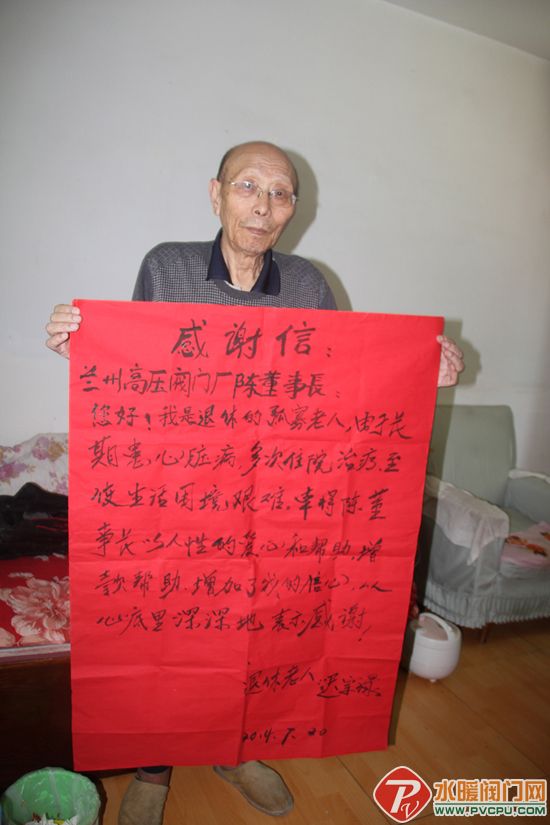 感谢信：
兰州高压阀门厂陈董事長：
您好！我是退休的孤寡老人，由于長
期患心脏病，多次住院治疗，至
使生活困境，艰难，幸得陈董
事长以人性的爱心和帮助，增
款帮助，增加了我的信心，从
心底里深深地表示感谢！
退休老人
20
水暖阀门网
WWW.PVCPU.COM